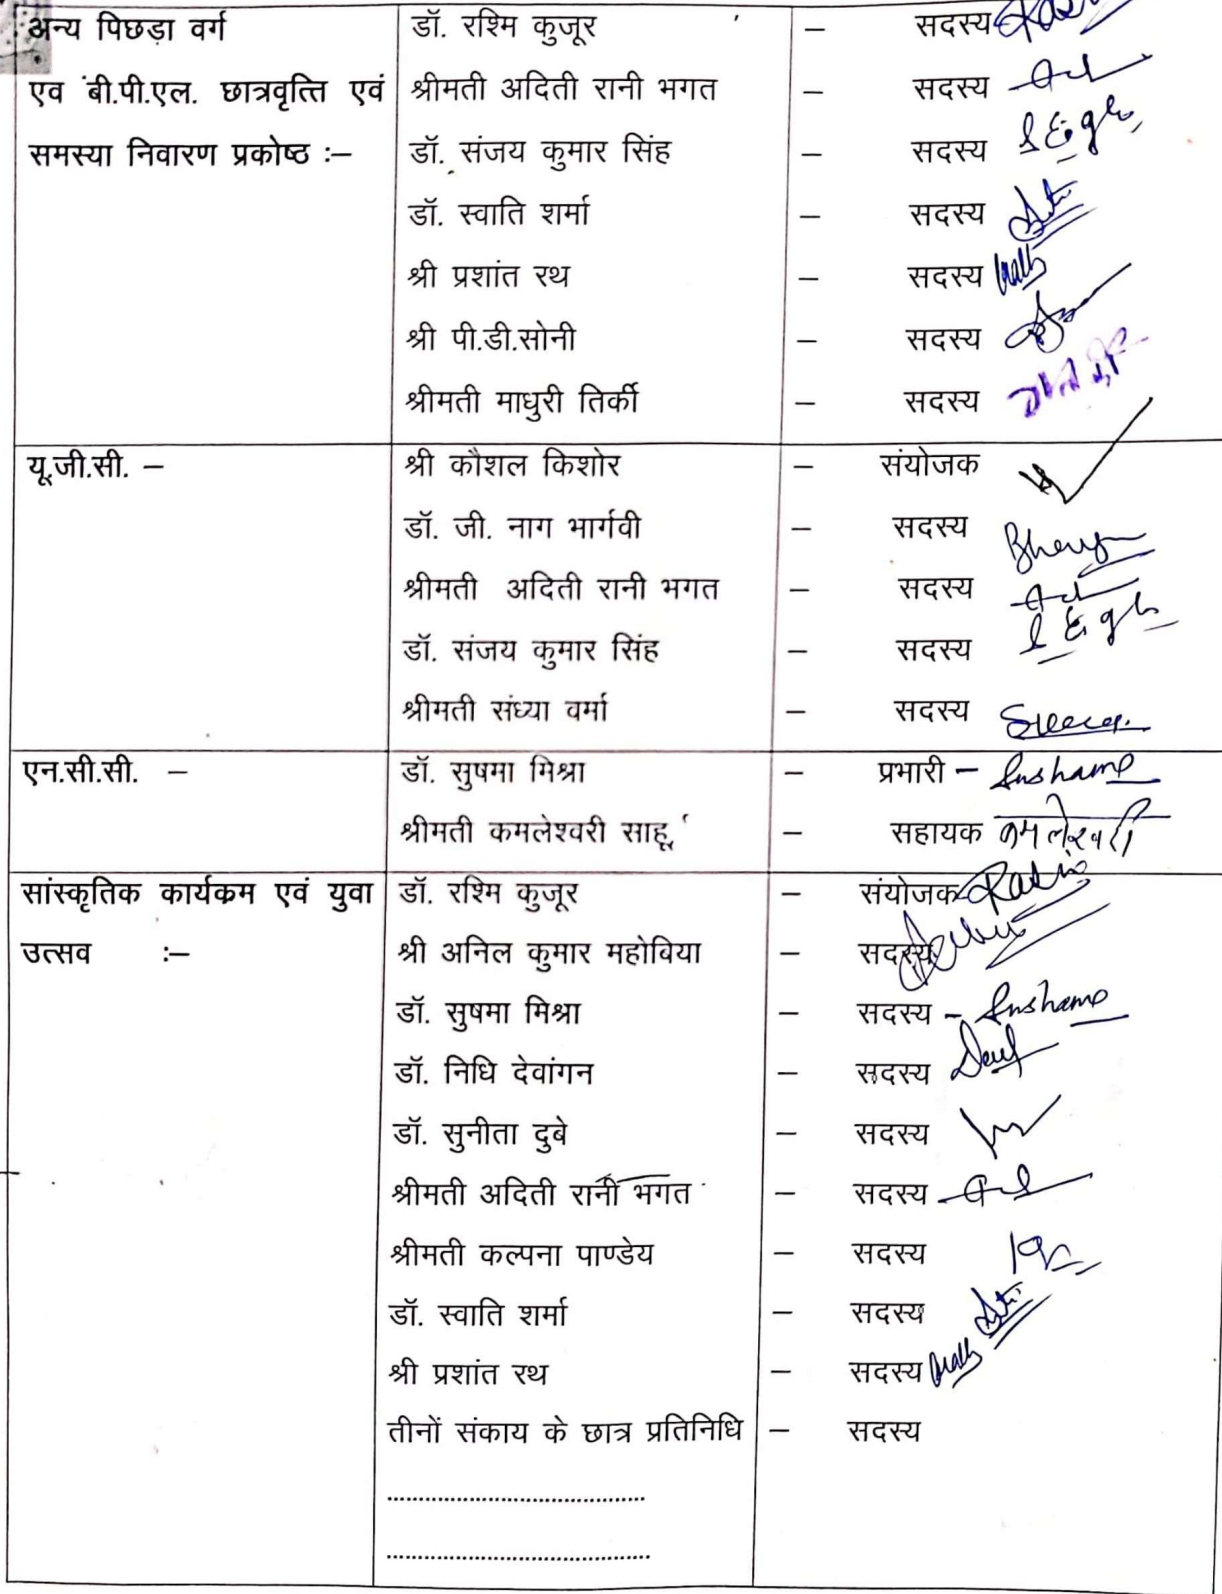 अन्य पिछड़ा वर्ग डॉ. रश्मि कुजूर – सदस्य
एव बी.पी.एल. छात्रवृत्ति एवं श्रीमती अदिती रानी भगत – सदस्य
समस्या निवारण प्रकोष्ठ :– डॉ. संजय कुमार सिंह – सदस्य
डॉ. स्वाति शर्मा – सदस्य
श्री प्रशांत रथ – सदस्य
श्री पी.डी.सोनी – सदस्य
श्रीमती माधुरी तिर्की – सदस्य
यू.जी.सी. – श्री कौशल किशोर – संयोजक
डॉ. जी. नाग भार्गवी – सदस्य
श्रीमती अदिती रानी भगत – सदस्य
डॉ. संजय कुमार सिंह – सदस्य
श्रीमती संध्या वर्मा – सदस्य
एन.सी.सी. – डॉ. सुषमा मिश्रा – प्रभारी – Sushama
श्रीमती कमलेश्वरी साहू – सहायक कमलेश्वरी
सांस्कृतिक कार्यकम एवं युवा डॉ. रश्मि कुजूर – संयोजक
उत्सव :– श्री अनिल कुमार महोबिया – सदस्य
डॉ. सुषमा मिश्रा – सदस्य – Sushama
डॉ. निधि देवांगन – सदस्य
डॉ. सुनीता दुबे – सदस्य
श्रीमती अदिती रानी भगत – सदस्य
श्रीमती कल्पना पाण्डेय – सदस्य
डॉ. स्वाति शर्मा – सदस्य
श्री प्रशांत रथ – सदस्य
तीनों संकाय के छात्र प्रतिनिधि – सदस्य
........................................
........................................